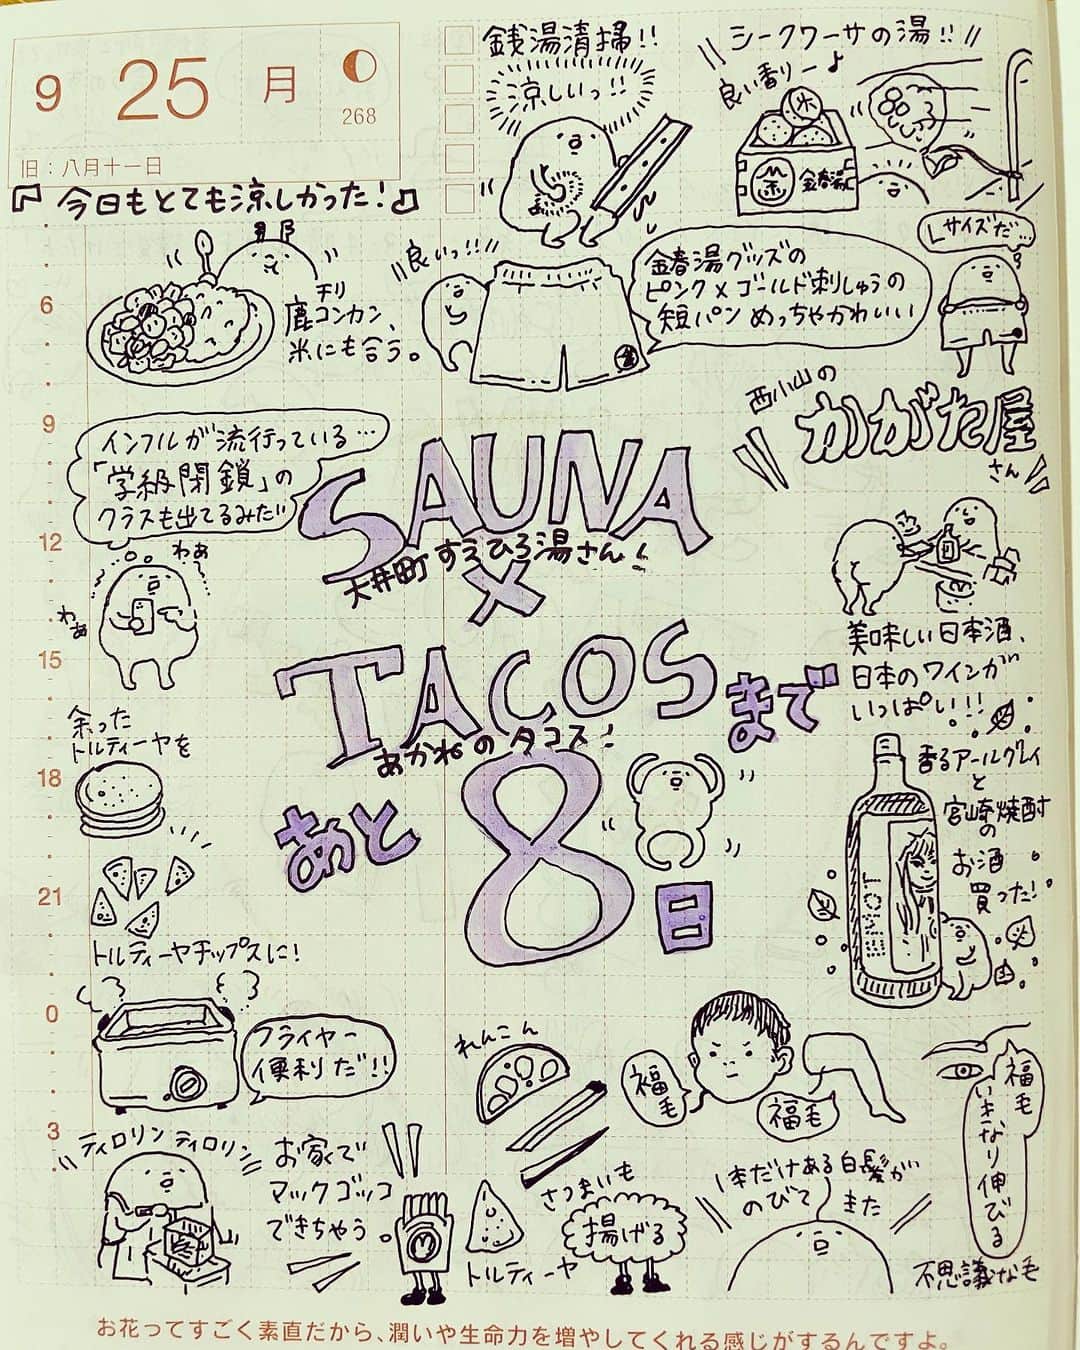 9 25 月
268
旧：八月十一日
『今日もとても涼しかった！』
銭湯清掃!!
涼しいっ!!
シークワーサーの湯!!
良い香りー♪
金春湯
Lサイズだ…
良いっ!!
金春湯グッズの
ピンク×ゴールド刺しゅうの
短パン めっちゃかわいい
チリ
鹿コンカン、
米にも合う。
西小山の
かがた屋
さん
インフルが流行っている…
「学級閉鎖」の
クラスも出てるみたい
わぁ
わぁ
SAUNA
大井町 すえひろ湯さん！
×
TACOSまで
あかねのタコス！
あと8日
美味しい日本酒、
日本のワインが
いっぱい!!!
香るアールグレイ
と
宮崎焼酎
の
お酒
買った！
余った
トルティーヤを
トルティーヤチップスに！
フライヤー
便利だ!!
れんこん
福毛
福毛
福毛
いきなり伸びる
不思議な毛
ティロリン ティロリン
お家で
マックゴッコ
できちゃう。
M
トルティーヤ
さつまいも
揚げる
1本だけある白髪が
のびて きた
6
9
12
15
18
21
0
3
お花ってすごく素直だから、潤いや生命力を増やしてくれる感じがするんですよ。